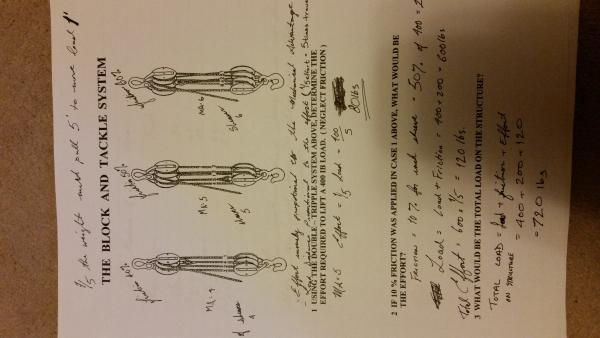 1/5 the weight must pull 5' to move load 1'
THE BLOCK AND TACKLE SYSTEM
friction 60%
MA-6
Sheaves
6
friction 50%
MA-5
Sheaves
5
friction 40%
MA-4
# of sheaves
4
- Effort inversely proportional to the Mechanical Advantage
to the effort
1 USING THE DOUBLE - TRIPPLE SYSTEM ABOVE, DETERMINE THE
EFFORT REQUIRED TO LIFT A 400 lB LOAD. ( NEGLECT FRICTION )
MA=5 Effort = 1/5 Load = 400
5
80 lbs
2 IF 10 % FRICTION WAS APPLIED IN CASE 1 ABOVE, WHAT WOULD BE
THE EFFORT?
Friction = 10% for each sheave = 50% of 400 = 2
Load = Load + Friction = 400 + 200 = 600 lbs
Total Effort = 600 x 1/5 = 120 lbs.
3 WHAT WOULD BE THE TOTAL LOAD ON THE STRUCTURE?
TOTAL LOAD = load + friction + Effort
ON STRUCTURE
= 400 + 200 + 120
= 720 lbs